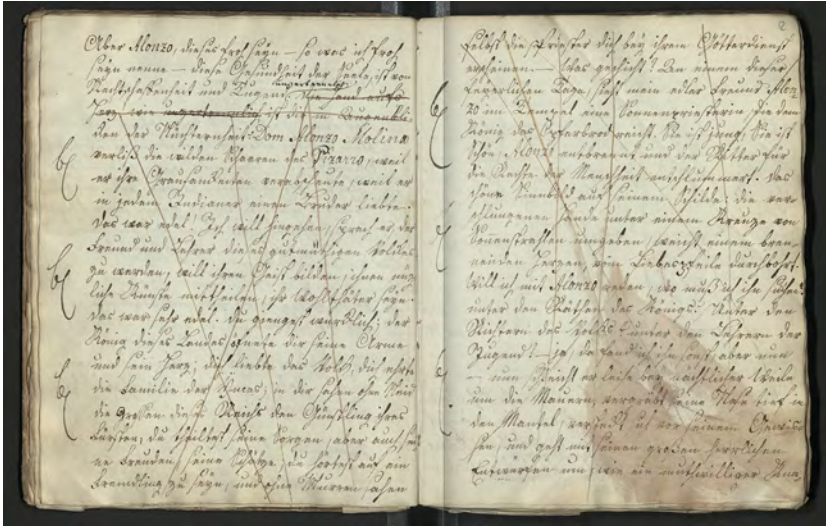 Aber Alonzo, dieses froh seyn — so was ich froh
seyn nenne — diese Gesundheit der Seele, ist von
Rechtschaffenheit und Tugend
ist die
der Nüchternheit. Dom Alonzo Molina
verließ die wilden Schaaren des Pizarro, weil
er ihre Grausamkeiten verabscheute, weil er
in jedem Indianer einen Bruder liebte.
Das war edel! Ich will hingehen, sprach er, der
Freund und Lehrer dieses gutmüthigen Volkes
zu werden, will ihren Geist bilden, ihnen nüz-
liche Künste mittheilen, ihr Wohlthäter seyn.
Das war sehr edel. Du giengest würklich; der
König dieses Landes öfnete dir seine Arme
und sein Herz; dich liebte das Volk, dich ehrte
die Familie der Yncas; in dir sahen ohne Neid
die Großen dieses Reichs den Günstling ihres
Fürsten; du theiltest seine Sorgen, aber auch sei-
ne Freuden, seine Schäze; du hörtest auf ein
Fremdling zu seyn, und ohne Murren sahen
2
selbst die Priester dich bey ihrem Götterdienst
erscheinen. — Was geschieht? An einem dieser
feyerlichen Tage sieht mein edler Freund Alon-
zo im Tempel eine Sonnenpriesterin, die dem
König das Opferbrod reicht. Sie ist jung, Sie ist
schön, Alonzo entbrennt und der Ritter für
die Rechte der Menschheit entschlummert. Das
schöne Sinnbild auf seinem Schilde: die ver-
schlungenen Hände unter einem Kreuze von
Sonnenstrahlen umgeben, weicht einem bren-
nenden Herzen, vom Liebespfeile durchbohrt.
Will ich mit Alonzo reden, wo muß ich ihn suchen?
unter den Räthen des Königs? Unter den
Richtern des Volks? unter den Lehrern der
Jugend? — ja, da fand ich ihn sonst, aber nun
— nun schleicht er leise bey nächtlicher Weile
um die Mauern, vergräbt seine Nase tief in
den Mantel, versteckt sich vor seinem Gewis-
sen, und geht mit seinen großen herrlichen
Entwürfen um, wie ein muthwilliger Kna-